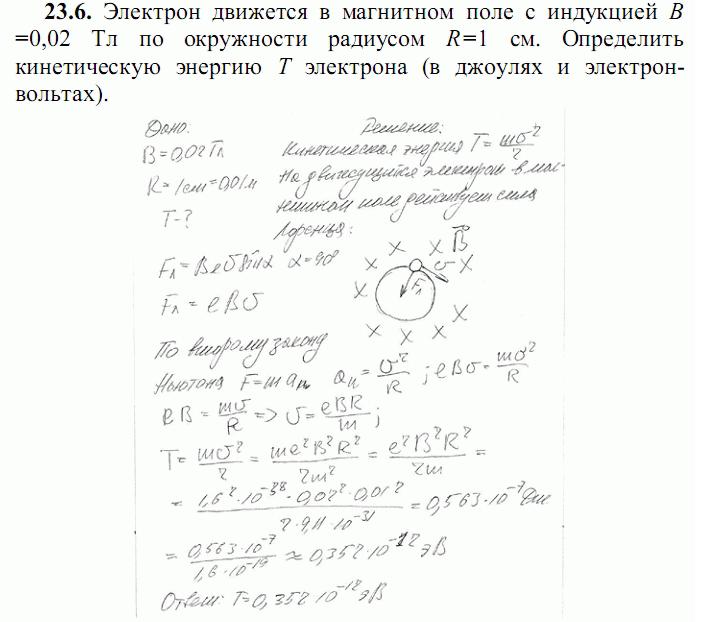 23.6. Электрон движется в магнитном поле с индукцией B
=0,02 Тл по окружности радиусом R=1 см. Определить
кинетическую энергию T электрона (в джоулях и электрон-
вольтах).
Дано: Решение:
B=0,02Тл Кинетическая энергия T= mυ²/2
R=1см=0,01м На движущийся электрон в маг-
T-? нитном поле действует сила
Лоренца:
Fл=Beυsinα α=90
Fл=eBυ
x x x B⃗
x υ x
x Fл
x x x x
По второму закону
Ньютона F=maₙ, aₙ= υ²/R ; eBυ= mυ²/R
eB= mυ/R => υ= eBR/m ;
T= mυ²/2 = me²B²R²/2m² = e²B²R²/2m =
= 1,6²·10⁻³⁸·0,02²·0,01²/2·9,11·10⁻³¹ =0,563·10⁻⁷Дж
= 0,563·10⁻⁷/1,6·10⁻¹⁹ ≈0,352·10⁻¹²эВ
Ответ: T=0,352 10⁻¹²эВ